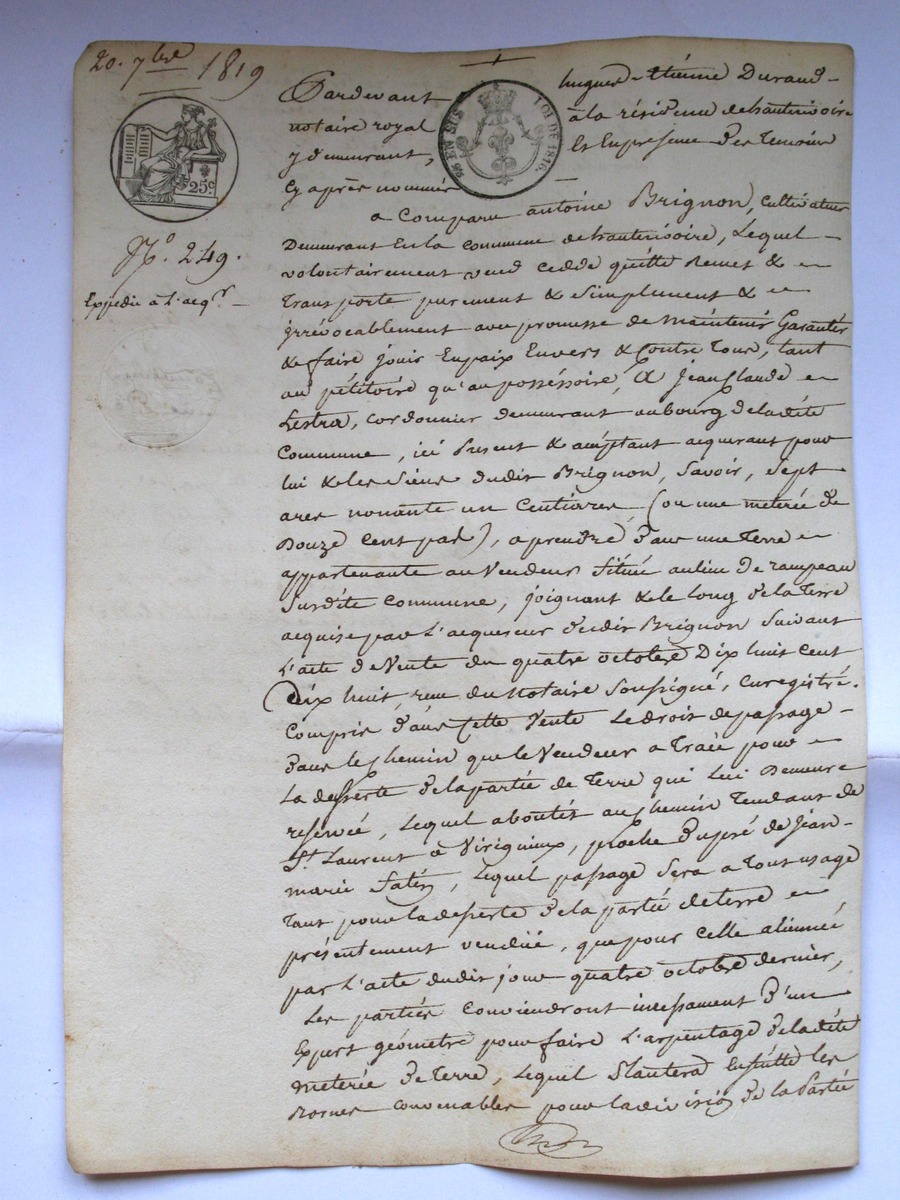 20. 7bre 1819
Pardevant hugues-étiénne Durand-
notaire royal à la résidence de hauterivoire
y demeurant, & en présence des temoins
Cy après nommés
EN SUS LOI DE 1816.
25c
N.o 249.
Expédié à l'acqr.
a comparu antoine Brignon, Cultivateur
Demeurant en la commune de hauterivoire, Lequel
volontairement vend cedde quitte Remet & en
transporte purement & simplement & en
irrévocablement avec promesse de maintenir Garantir
& faire jouir En paix Envers & Contre tous, tant
au pétitoire qu'au posséssoire, A Jean Claude
Lestra, cordonnier demeurant au bourg de la dite
Commune, ici Présent & acceptant acquerant pour
lui & les siens dudit Brignon, Savoir, Sept
ares nonante un Centiares (ou une meterée de
Douze Cent pas), a prendre dans une Terre
appartenante au Vendeur Située au lieu de rampeau
Susdite Commune, joignant & le long de la Terre
acquise par L'acquereur dudit Brignon Suivant
L'acte de Vente du quatre octobre Dix huit cent
Dix huit, reçu du notaire Soussigné, Enregistré.
Compris dans cette Vente Le droit de passage
dans le chemin que le Vendeur a Tracé pour
La desserte de la partie de Terre qui Lui Demeure
reservée, Lequel aboutit au chemin Tendant de
St. Laurent à Virigneux, proche du pré de Jean-
marie, Lequel passage Sera a Tout usage
Tant pour la desserte de la partie de terre
présentement vendüe, que pour celle alienneé
par L'acte dudit jour quatre octobre dernier,
Les parties Conviendront incessament d'un
Expert géometre pour faire L'arpentage de la dite
meterée de Terre, Lequel plantera Ensuitte les
Bornes convenables pour la division de la Partie